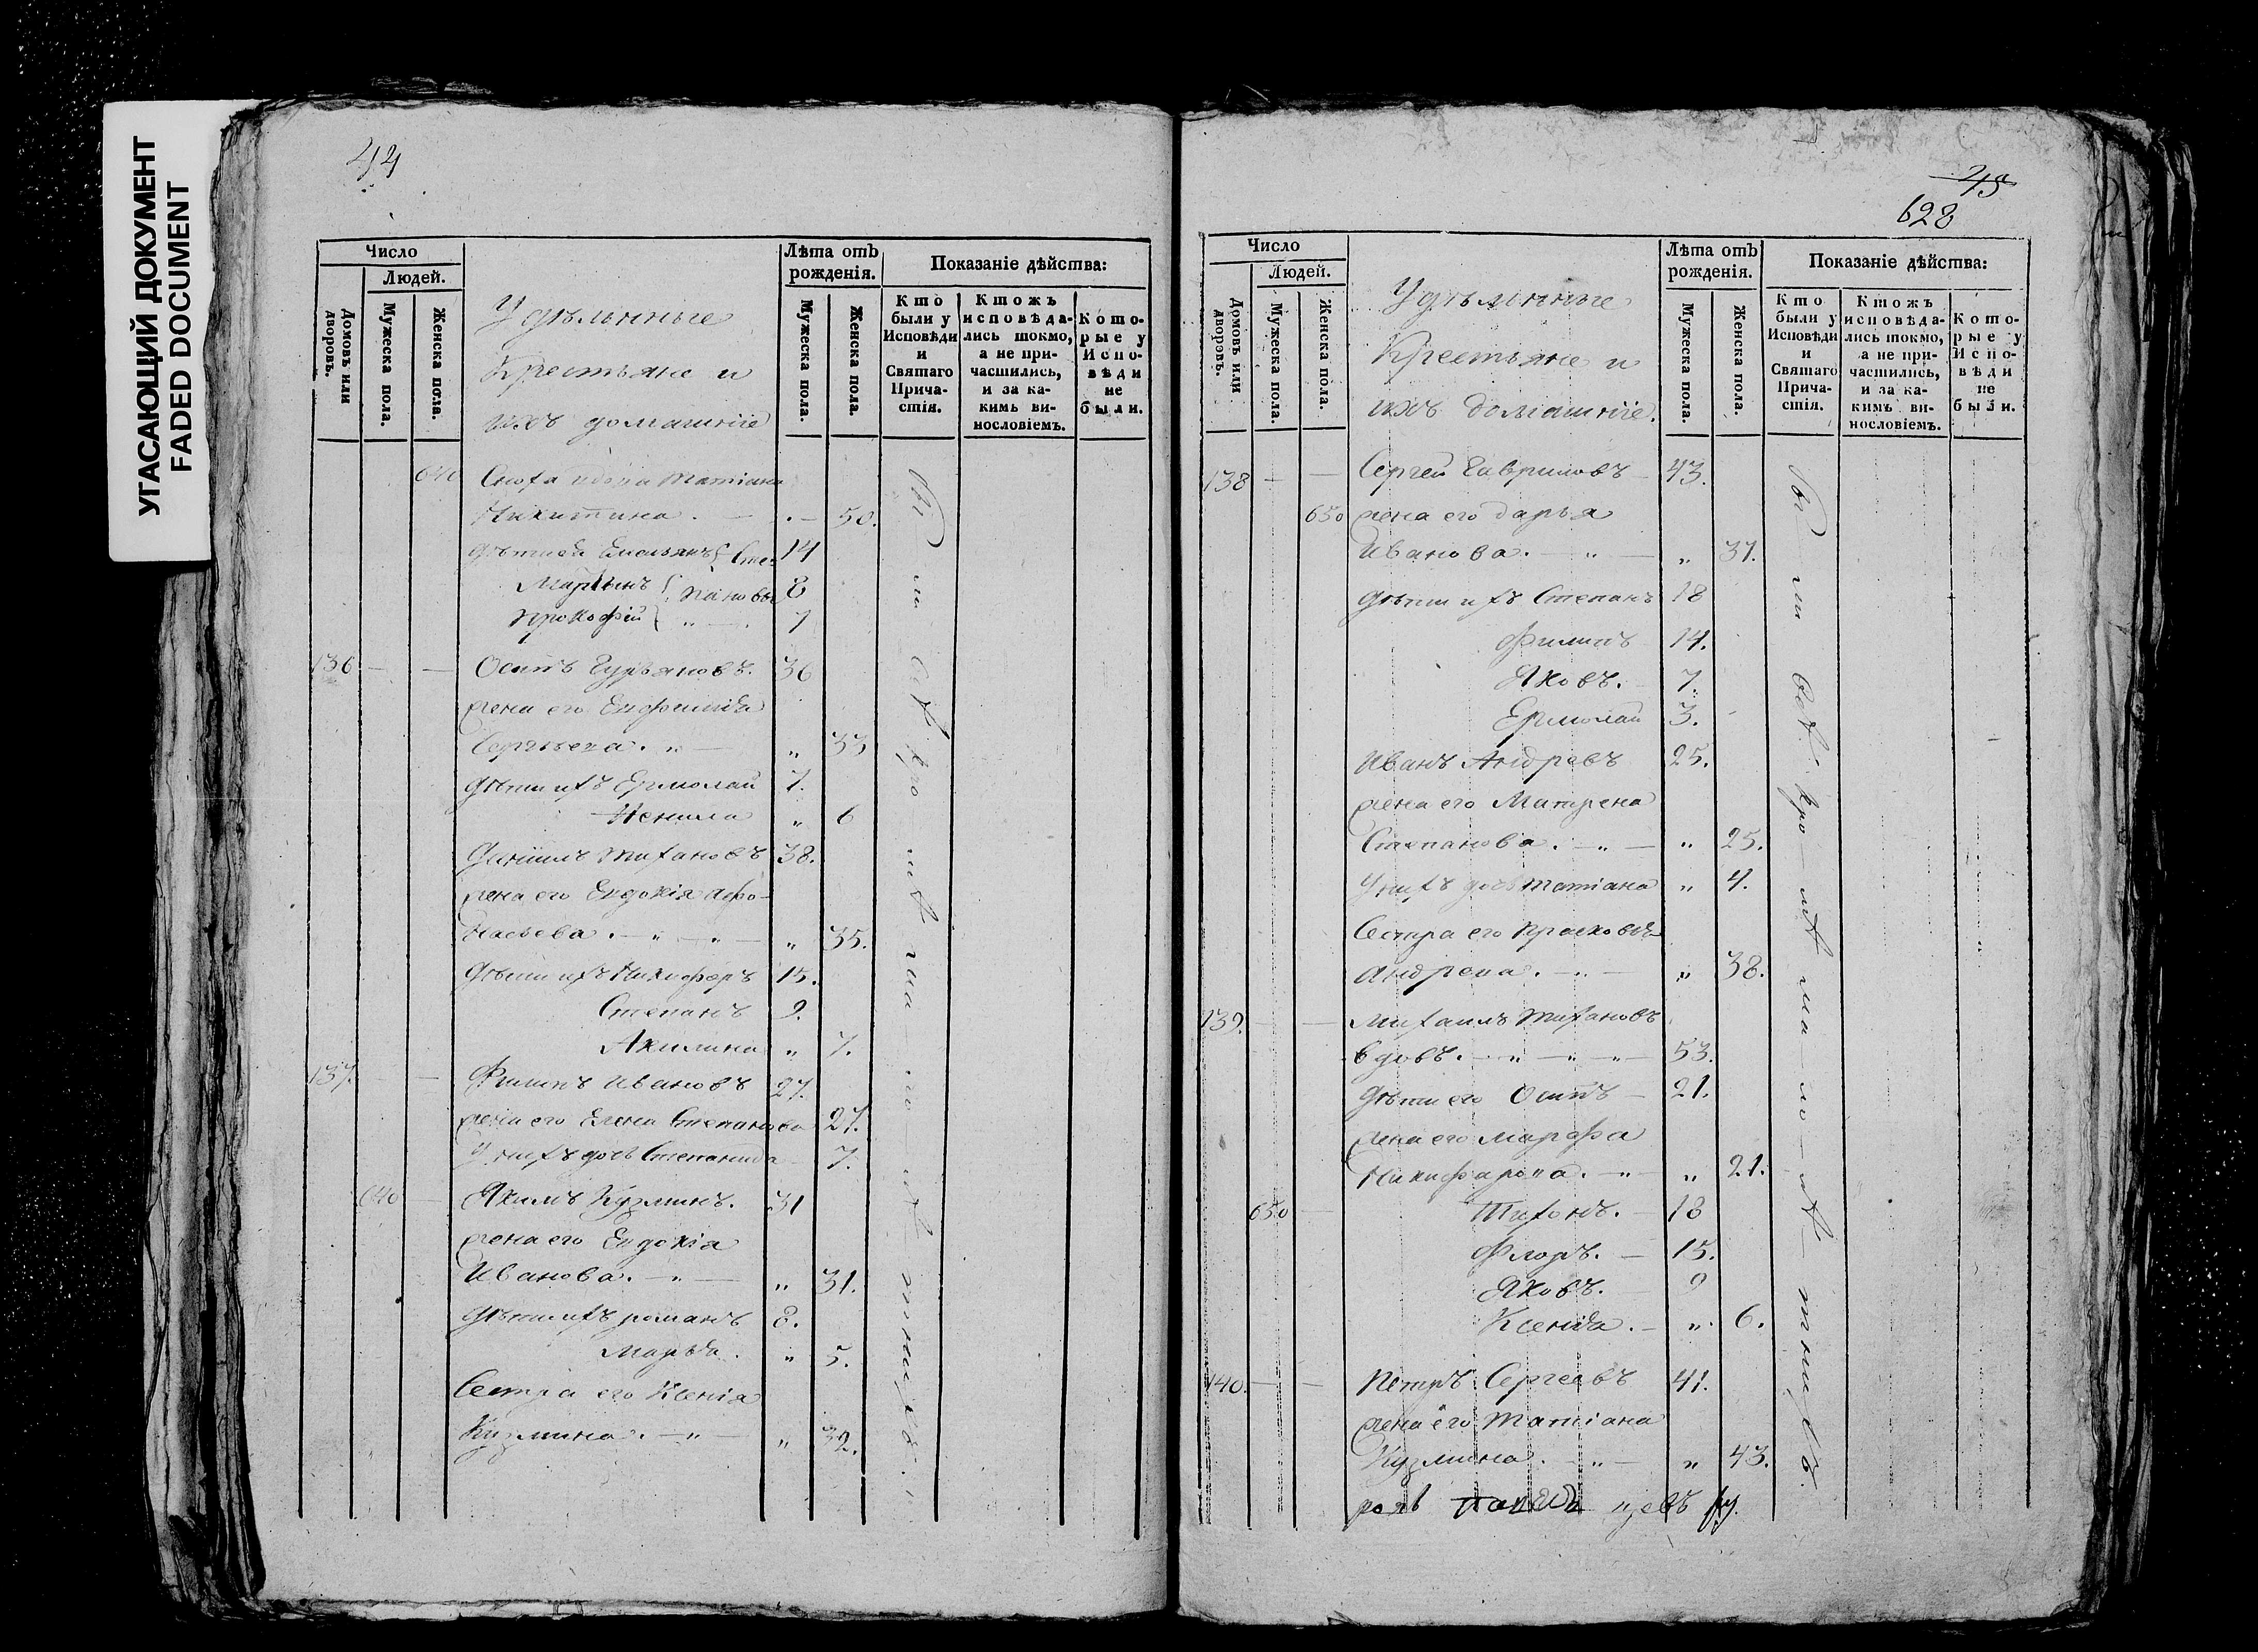 УГАСАЮЩИЙ ДОКУМЕНТ
FADED DOCUMENT
44
Число
Людей.
Домовъ или дворовъ.
Мужеска пола.
Женска пола.
Удѣльныые
Крестьяне и
ихъ домашніе
Лѣта отъ рожденія.
Мужеска пола.
Женска пола.
Показаніе дѣйства:
Кто были у Исповѣди и Святаго Причастія.
Ктожъ исповѣдались токмо, а не причастились, и за какимъ винословіемъ.
Которые у Исповѣди не были.
640 Сноха вдова Татіана
Никитина . — . — 50.
дѣти ея Емельянъ Сте- 14
Мартынъ пановы 8
Прокофій „ — . 7
136 — — Осипъ Гурьяновъ. 36
жена его Евфимія
Сергѣева . „ — „ 33
дѣти ихъ Ермолай 7.
Ненила „ 6
Даніилъ Тихановъ 38.
жена его Евдокія Афо-
насьева . — „ — „ — „ 35.
дѣти ихъ Никифоръ 15.
Степанъ 9.
Акилина „ 7.
137. — — Филипъ Ивановъ 27.
жена его Елена Степанова 27.
У нихъ дочь Степанида 7.
640 — Якимъ Кузминъ. 31
жена его Евдокія
Иванова . — „ — „ 31.
дѣти ихъ Романъ 8.
Марья . „ 5.
Сестра его Ксенія
Кузмина . — „ — „ 32.
45
628
Число
Людей.
Домовъ или дворовъ.
Мужеска пола.
Женска пола.
Удѣльныые
Крестьяне и
ихъ домашніе.
Лѣта отъ рожденія.
Мужеска пола.
Женска пола.
Показаніе дѣйства:
Кто были у Исповѣди и Святаго Причастія.
Ктожъ исповѣдались токмо, а не причастились, и за какимъ винословіемъ.
Которые у Исповѣди не были.
138 — — Сергей Гавриловъ — 43.
650 жена его Дарья
Иванова . — „ — „ 37.
дѣти ихъ Степанъ 18
Филипъ 14.
Яковъ. 7.
Ермолай 3.
Иванъ Андревъ 25.
жена его Матрена
Степанова . — „ — „ 25.
У нихъ дочь Татіана „ 4.
Сестра его Прасковья
Андрева . — „ — „ 38.
139. — — Михаилъ Тихановъ
вдовъ . — „ — „ — „ — 53.
дѣти его Осипъ — 21.
жена его Марфа
Никифарова . — „ — „ 21.
650 — Тихонъ. — 18
Флоръ. — 15.
Яковъ. 9
Ксенія . — „ 6.
140. — — Петръ Сергеевъ 41.
жена его Татіана
Кузмина . — „ — „ 43.